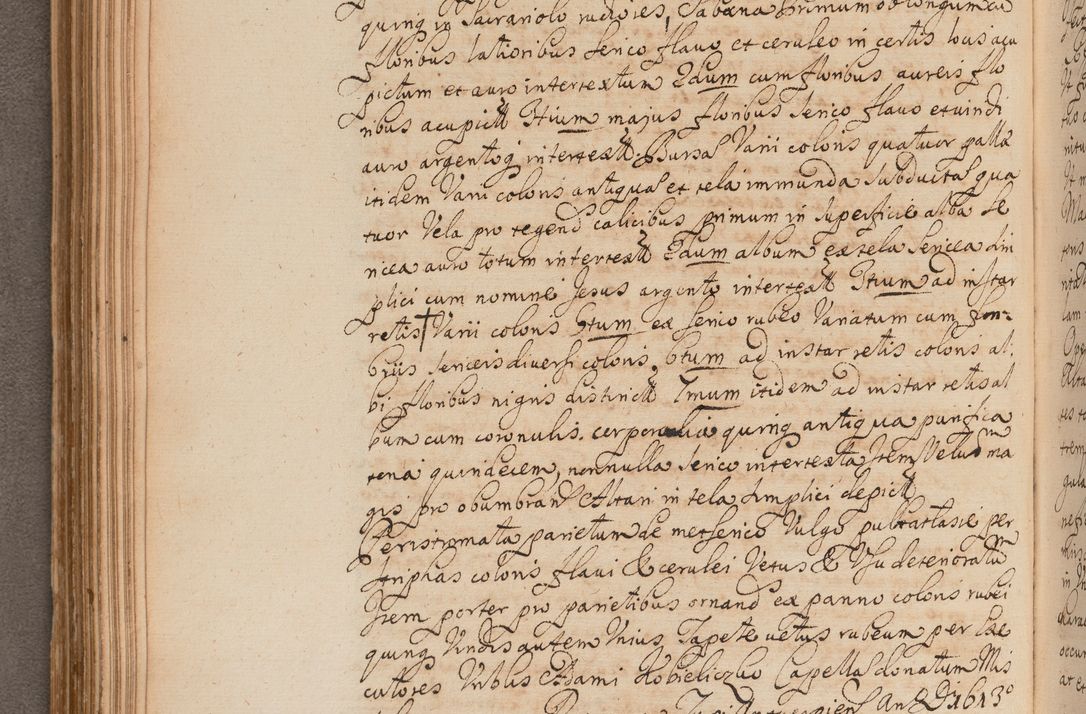 quinq in Sacrariolo rudiores, Sabana primum oblongum cu
floribus latioribus serico flavo et ceruleo in certis locis acu
pictum et auro intertextum 2dum cum floribus aureis flo
ribus acupict 3tium majus floribus serico flavo et viridi
auro argentoq intertext. Bursae Varii coloris quatuor palla
itidem Varii coloris antiquae et tela immunda subductae qua
tuor Vela pro tegend calicibus primum in superficie alba se
ricea auro totum intertext 2dum album ex tela sericea sim
plici cum nomine Jesus argento intertext 3tium ad instar
retis Varii coloris 5tum ex serico rubeo Variatum cum fim=
briis sericeis diversi coloris, 6tum ad instar retis coloris al.
bi floribus nigris distinct 7mum itidem ad instar retis al
bum cum coronulis. corporalia quinq antiqua purifica
toria quindecem, nonnulla serico intertexta Item Velum ma
gis pro obumbrand Altari in tela simplici depict
Peristromata parietum de metserico Vulgo pultarlasie per
striphas coloris flavi & cerulei Vetus & Usu deterioratum
Item porter pro parietibus ornand ex panno coloris rubei
quinq Viridis autem Unius, Tapete vetus rubeum per Exe
cutores Urbis Adami Kobieliczko Capellae donatum Mis
An D 1613